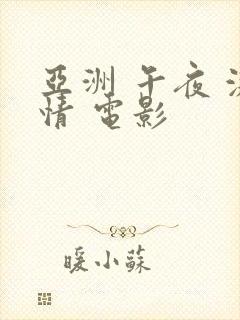 亞洲 午夜
情 電影
暖小蘇